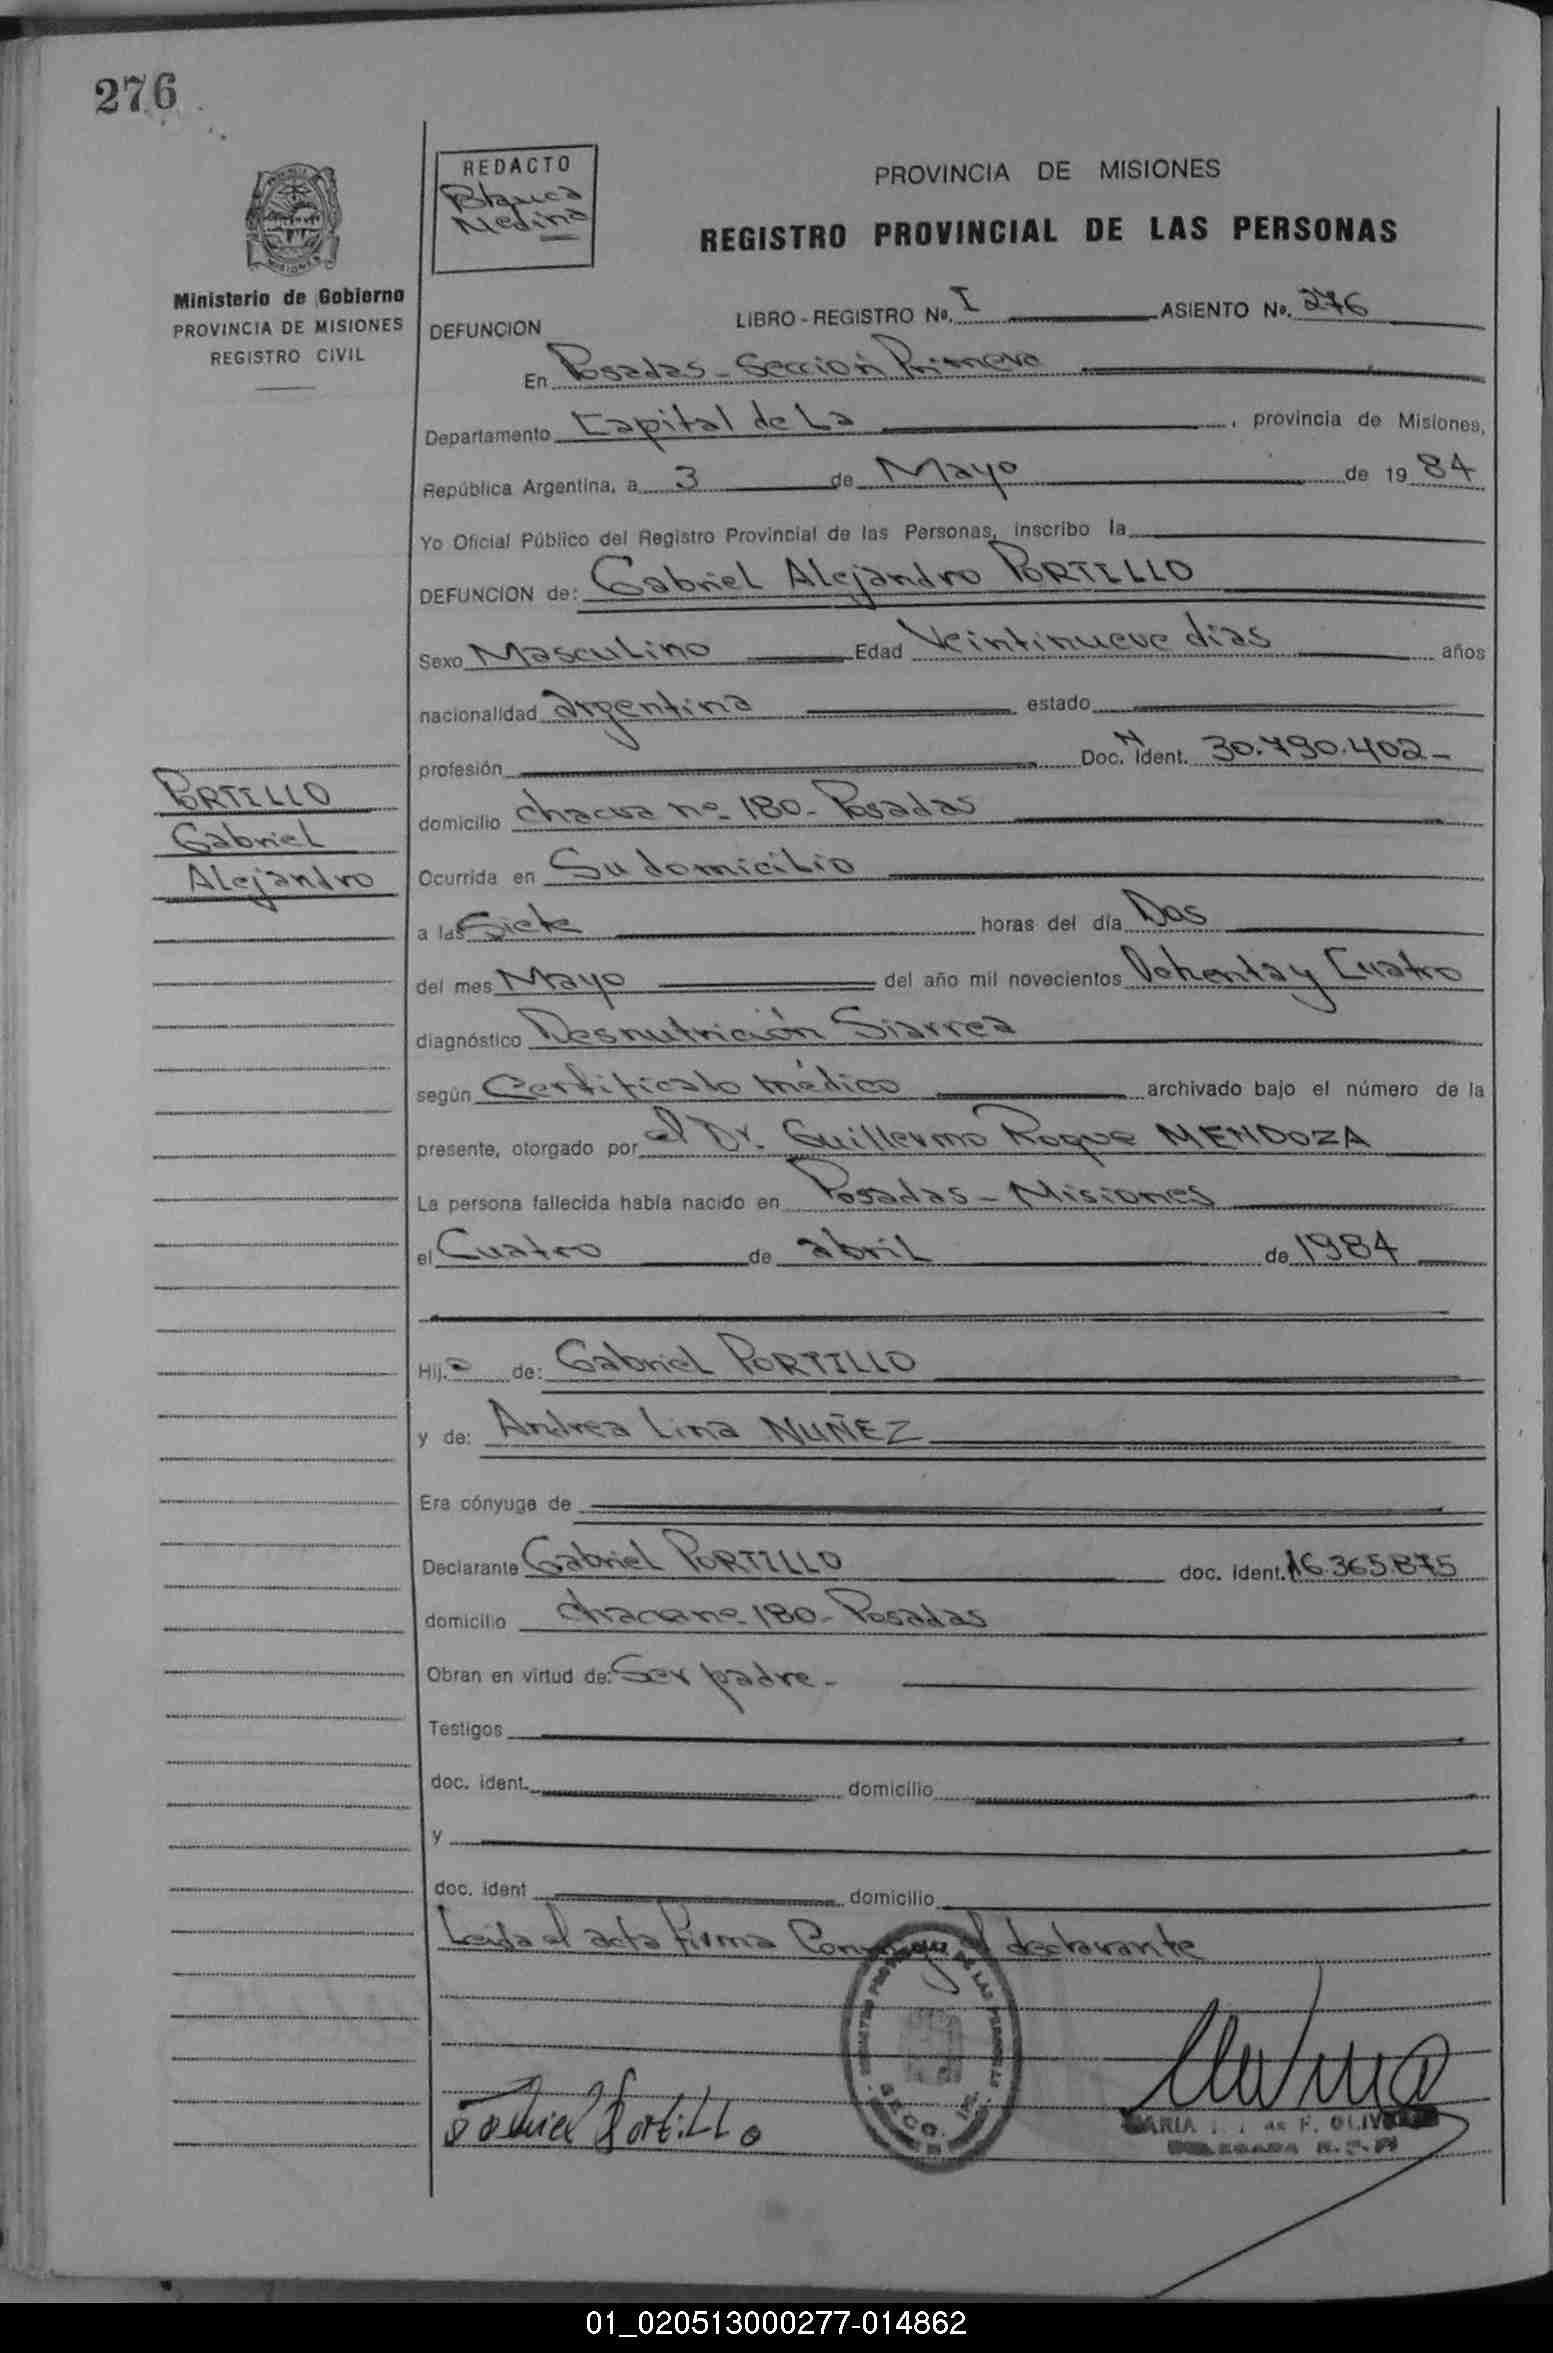 276
REDACTO
Blanca
Medina
PROVINCIA DE MISIONES
REGISTRO PROVINCIAL DE LAS PERSONAS
Ministerio de Gobierno
PROVINCIA DE MISIONES
REGISTRO CIVIL
DEFUNCION LIBRO - REGISTRO Nº. I ASIENTO Nº. 276
En Posadas - Sección Primera
Departamento Capital de La , provincia de Misiones,
República Argentina, a 3 de Mayo de 1984
Yo Oficial Público del Registro Provincial de las Personas, inscribo la
DEFUNCION de: Gabriel Alejandro PORTILLO
Sexo Masculino Edad Veintinueve días años
nacionalidad argentina estado
profesión Doc. N Ident. 30.790.402-
PORTILLO
Gabriel
Alejandro
domicilio chacra nº 180 - Posadas
Ocurrida en Su domicilio
a las Siete horas del día Dos
del mes Mayo del año mil novecientos Ochenta y Cuatro
diagnóstico Desnutrición Siarrea
según Certificado médico archivado bajo el número de la
presente, otorgado por el Dr. Guillermo Roque MENDOZA
La persona fallecida había nacido en Posadas - Misiones
el Cuatro de abril de 1984
Hij o de: Gabriel PORTILLO
y de: Andrea Lina NUÑEZ
Era cónyuge de
Declarante Gabriel PORTILLO doc. ident. 16.365.875
domicilio chacra nº 180 - Posadas
Obran en virtud de: Ser padre -
Testigos
doc. ident. domicilio
y
doc. ident domicilio
Leida el acta firma Conmigo el declarante
Gabriel Portillo
MARIA de F. OLIVERA
DELEGADA R.P.P.
01_020513000277-014862